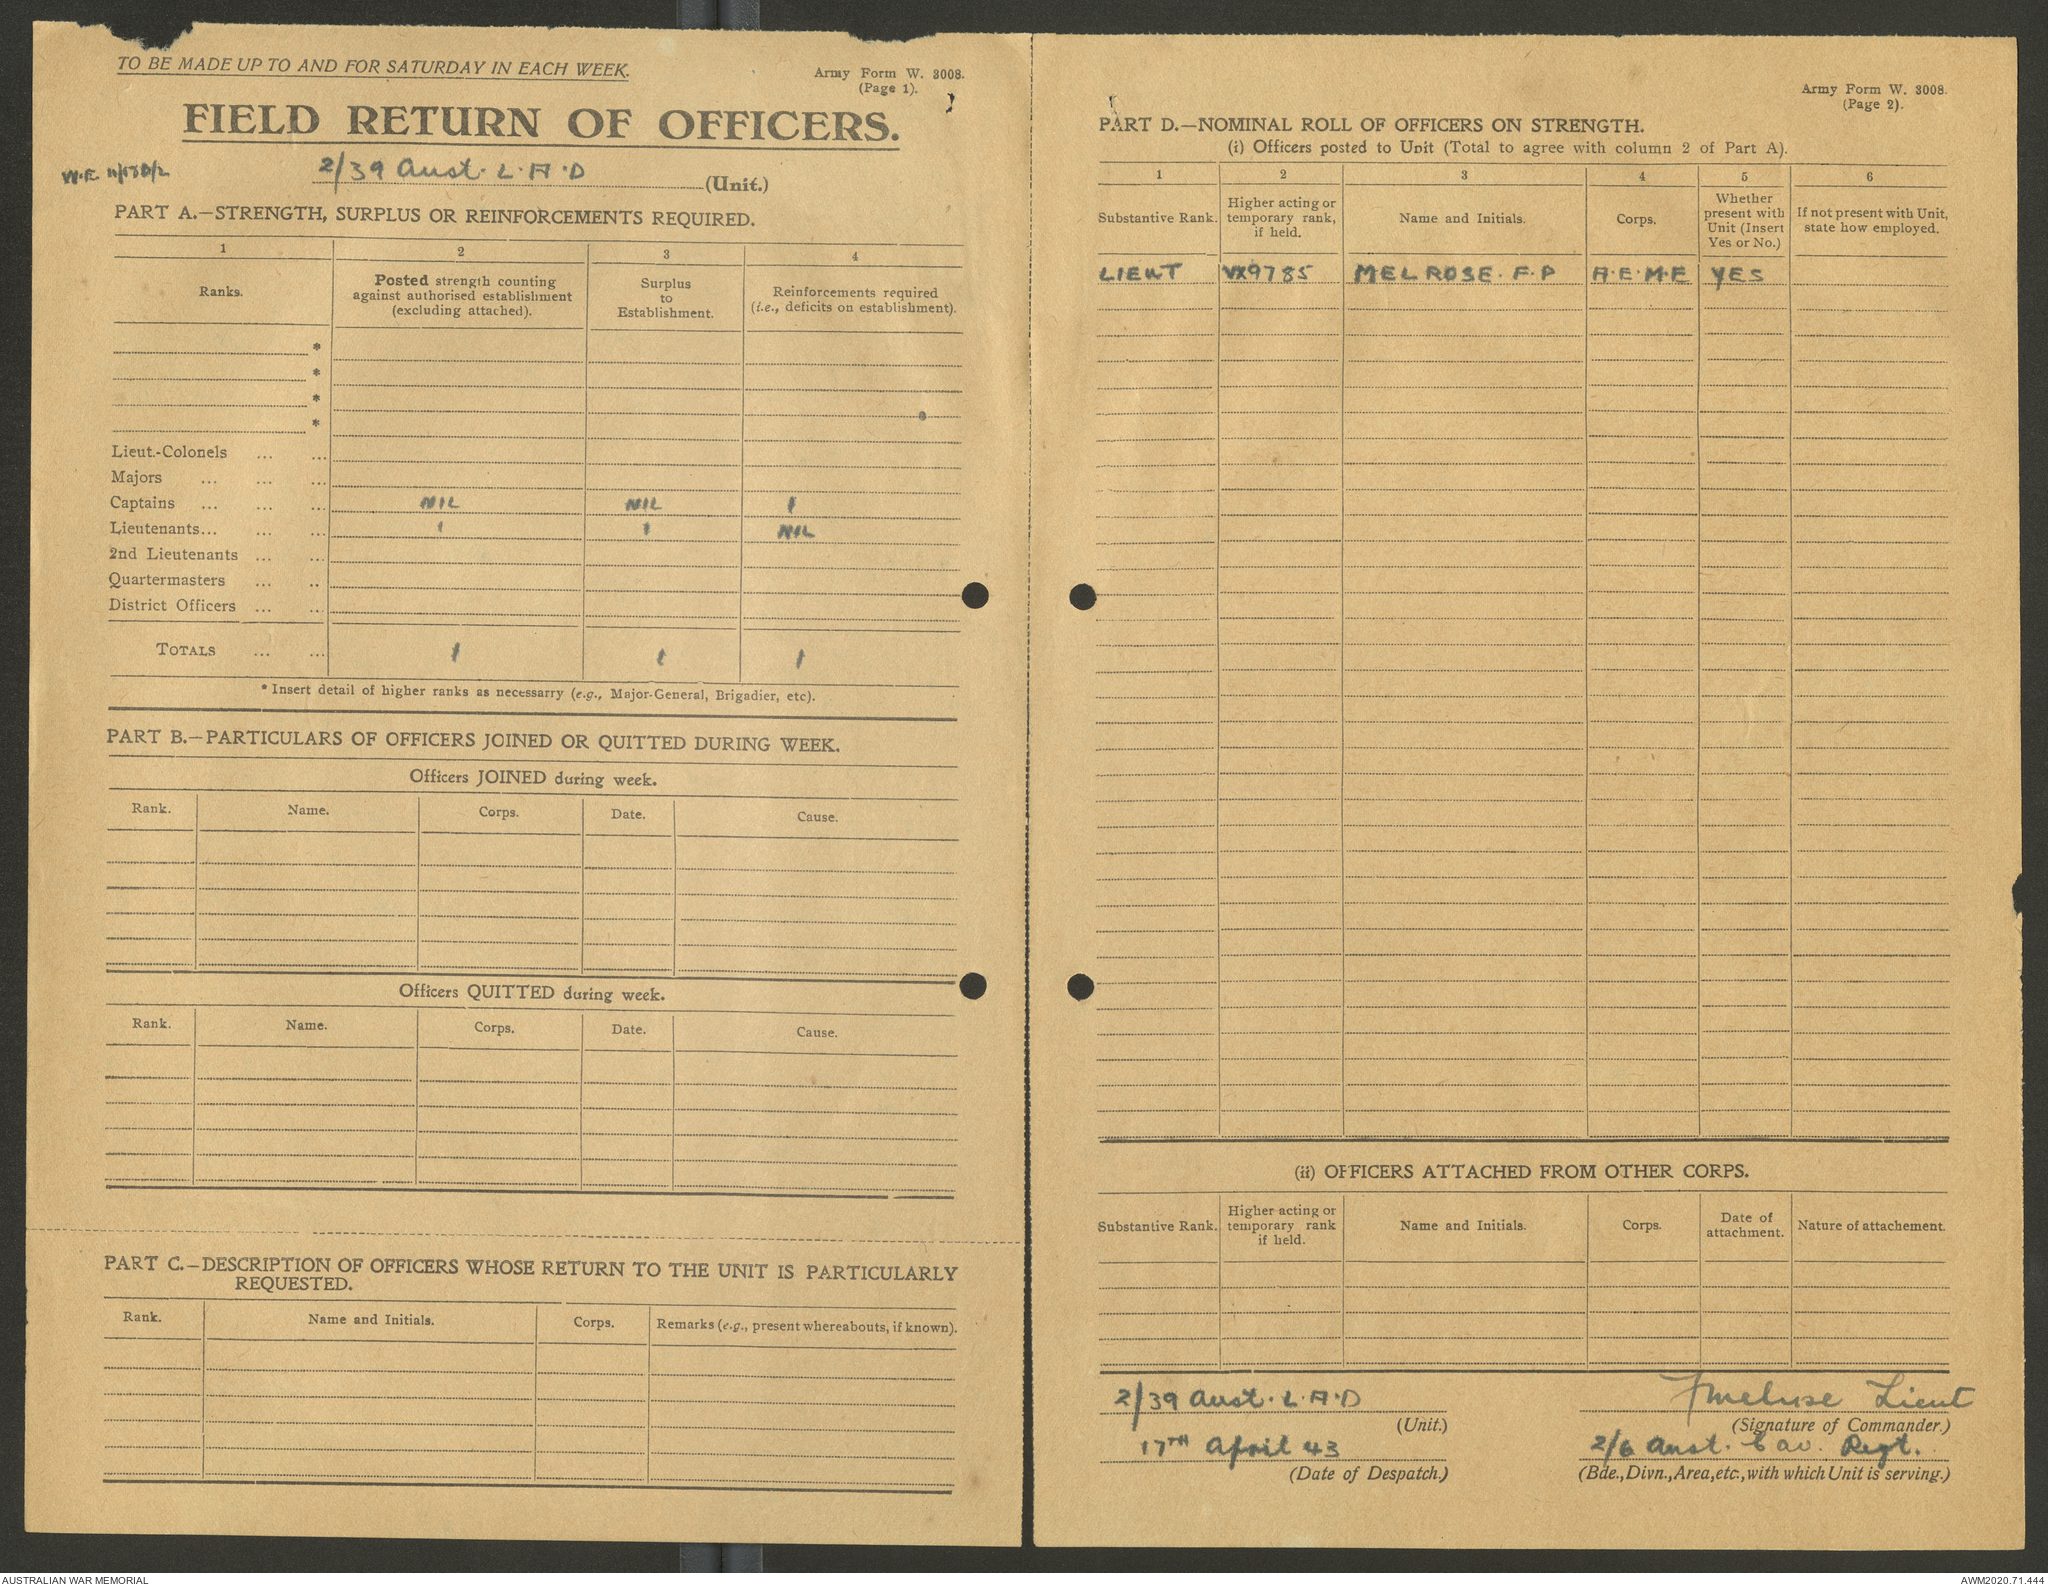 TO BE MADE UP TO AND FOR SATURDAY IN EACH WEEK.
Army Form W. 3008.
(Page 1).
FIELD RETURN OF OFFICERS.
W.E.
2/39 Aust. L.A.D (Unit.)
PART A.—STRENGTH, SURPLUS OR REINFORCEMENTS REQUIRED.
1 2 3 4
Ranks. Posted strength counting against authorised establishment (excluding attached). Surplus to Establishment. Reinforcements required (i.e., deficits on establishment).
*
*
*
*
Lieut.-Colonels ... ...
Majors ... ... ...
Captains ... ... ... NIL NIL 1
Lieutenants... ... ... 1 1 NIL
2nd Lieutenants ... ...
Quartermasters ... ..
District Officers ... ...
TOTALS ... ... 1 1 1
* Insert detail of higher ranks as necessarry (e.g., Major-General, Brigadier, etc).
PART B.—PARTICULARS OF OFFICERS JOINED OR QUITTED DURING WEEK.
Officers JOINED during week.
Rank. Name. Corps. Date. Cause.
Officers QUITTED during week.
Rank. Name. Corps. Date. Cause.
PART C.—DESCRIPTION OF OFFICERS WHOSE RETURN TO THE UNIT IS PARTICULARLY
REQUESTED.
Rank. Name and Initials. Corps. Remarks (e.g., present whereabouts, if known).
Army Form W. 3008.
(Page 2).
PART D.—NOMINAL ROLL OF OFFICERS ON STRENGTH.
(i) Officers posted to Unit (Total to agree with column 2 of Part A).
1 2 3 4 5 6
Substantive Rank. Higher acting or temporary rank, if held. Name and Initials. Corps. Whether present with Unit (Insert Yes or No.) If not present with Unit, state how employed.
LIEUT VX9785 MELROSE. F.P A.E.M.E YES
(ii) OFFICERS ATTACHED FROM OTHER CORPS.
Substantive Rank. Higher acting or temporary rank if held. Name and Initials. Corps. Date of attachment. Nature of attachement.
2/39 Aust. L.A.D
(Unit.)
FMelrose Lieut
(Signature of Commander.)
17TH April 43
(Date of Despatch.)
2/6 Aust. Cav. Regt.
(Bde., Divn., Area, etc., with which Unit is serving.)
AUSTRALIAN WAR MEMORIAL
AWM2020.71.444